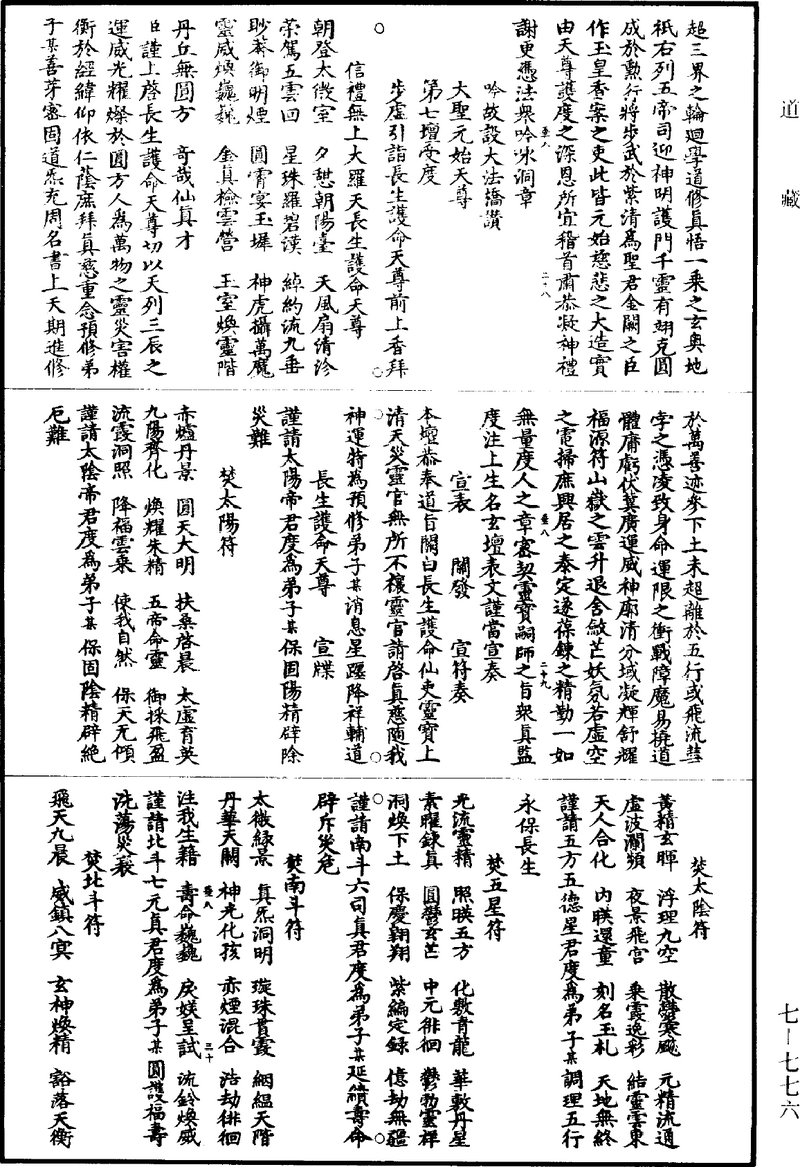 道藏
超三界之輪廻學道修眞悟一乘之玄奧地
祇右列五帝司迎神明護門千靈有翊克圓
成於勲行將步武於紫清為聖君金闕之臣
作玉皇香案之吏此皆元始慈悲之大造實
由天尊護度之深恩所宜稽首肅恭凝神禮
謝更憑法衆吟咏洞章
吟故設大法橋讚
大聖元始天尊
第七壇受度
步虛引詣長生護命天尊前上香拜
信禮無上大羅天長生護命天尊
朝登太微室 夕憇朝陽臺 天風扇清沴
榮駕五雲回 星珠羅碧漢 綽約流九垂
眇莽御明煙 圓霄宴玉墀 神虎攝萬魔
靈威煥巍巍 金眞檢雲營 玉室煥靈階
丹丘無圓方 奇哉仙眞才
臣謹上啓長生護命天尊切以天列三辰之
運威光耀燦於圓方人為萬物之靈災害權
衡於經緯仰依仁蔭庶拜眞慈重念預修弟
子某善芽密固道炁充周名書上天期進修
於萬善迹參下土未超離於五行或飛流彗
孛之憑凌致身命運限之衝戰障魔易撓道
體庸虧伏冀廣運威神廓清分域凝輝舒耀
福源符山嶽之雲升退舍斂芒妖氛若虛空
之電掃庶興居之泰定遂葆鍊之精勤一如
無量度人之章密契靈寶嗣師之旨衆眞監
度注上生名玄壇表文謹當宣奏
宣表 關發 宣符奏
本壇恭奉道旨關白長生護命仙吏靈寶上
清天災靈官無所不禳靈官請啓眞慈隨我
神運特為預修弟子某消息星躔降祥輔道
長生護命天尊 宣牒
謹請太陽帝君度為弟子某保固陽精辟除
災難
焚太陽符
赤爐丹景 圓天大明 扶桑啓晨 太虛育英
九陽齊化 煥耀朱精 五帝命靈 御採飛盈
流霞洞照 降福雲乘 使我自然 保天无傾
謹請太陰帝君度為弟子某保固陰精辟絕
厄難
焚太陰符
黃精玄暉 浮理九空 散鬱寒飈 元精流通
虛波瀾頻 夜景飛宮 乘霞逸彩 結靈雲東
天人合化 內映還童 刻名玉札 天地無終
謹請五方五德星君度為弟子某調理五行
永保長生
焚五星符
光流靈精 照映五方 化敷青龍 華敷丹星
素曜鍊眞 圓鬱玄芒 中元徘徊 鬱勃靈祥
洞煥下土 保慶翺翔 紫編定録 億劫無疆
謹請南斗六司眞君度為弟子某延續壽命
辟斥災危
焚南斗符
太微緑景 眞炁洞明 璇珠貫霞 絪緼天階
丹華天關 神光化孩 赤煙混合 浩劫徘徊
注我生籍 壽命巍巍 戾媄呈試 流鈴煥威
謹請北斗七元眞君度為弟子某圓護福壽
洗蕩災衰
焚北斗符
飛天九晨 威鎮八冥 玄神煥精 豁落天衡
七—七七六